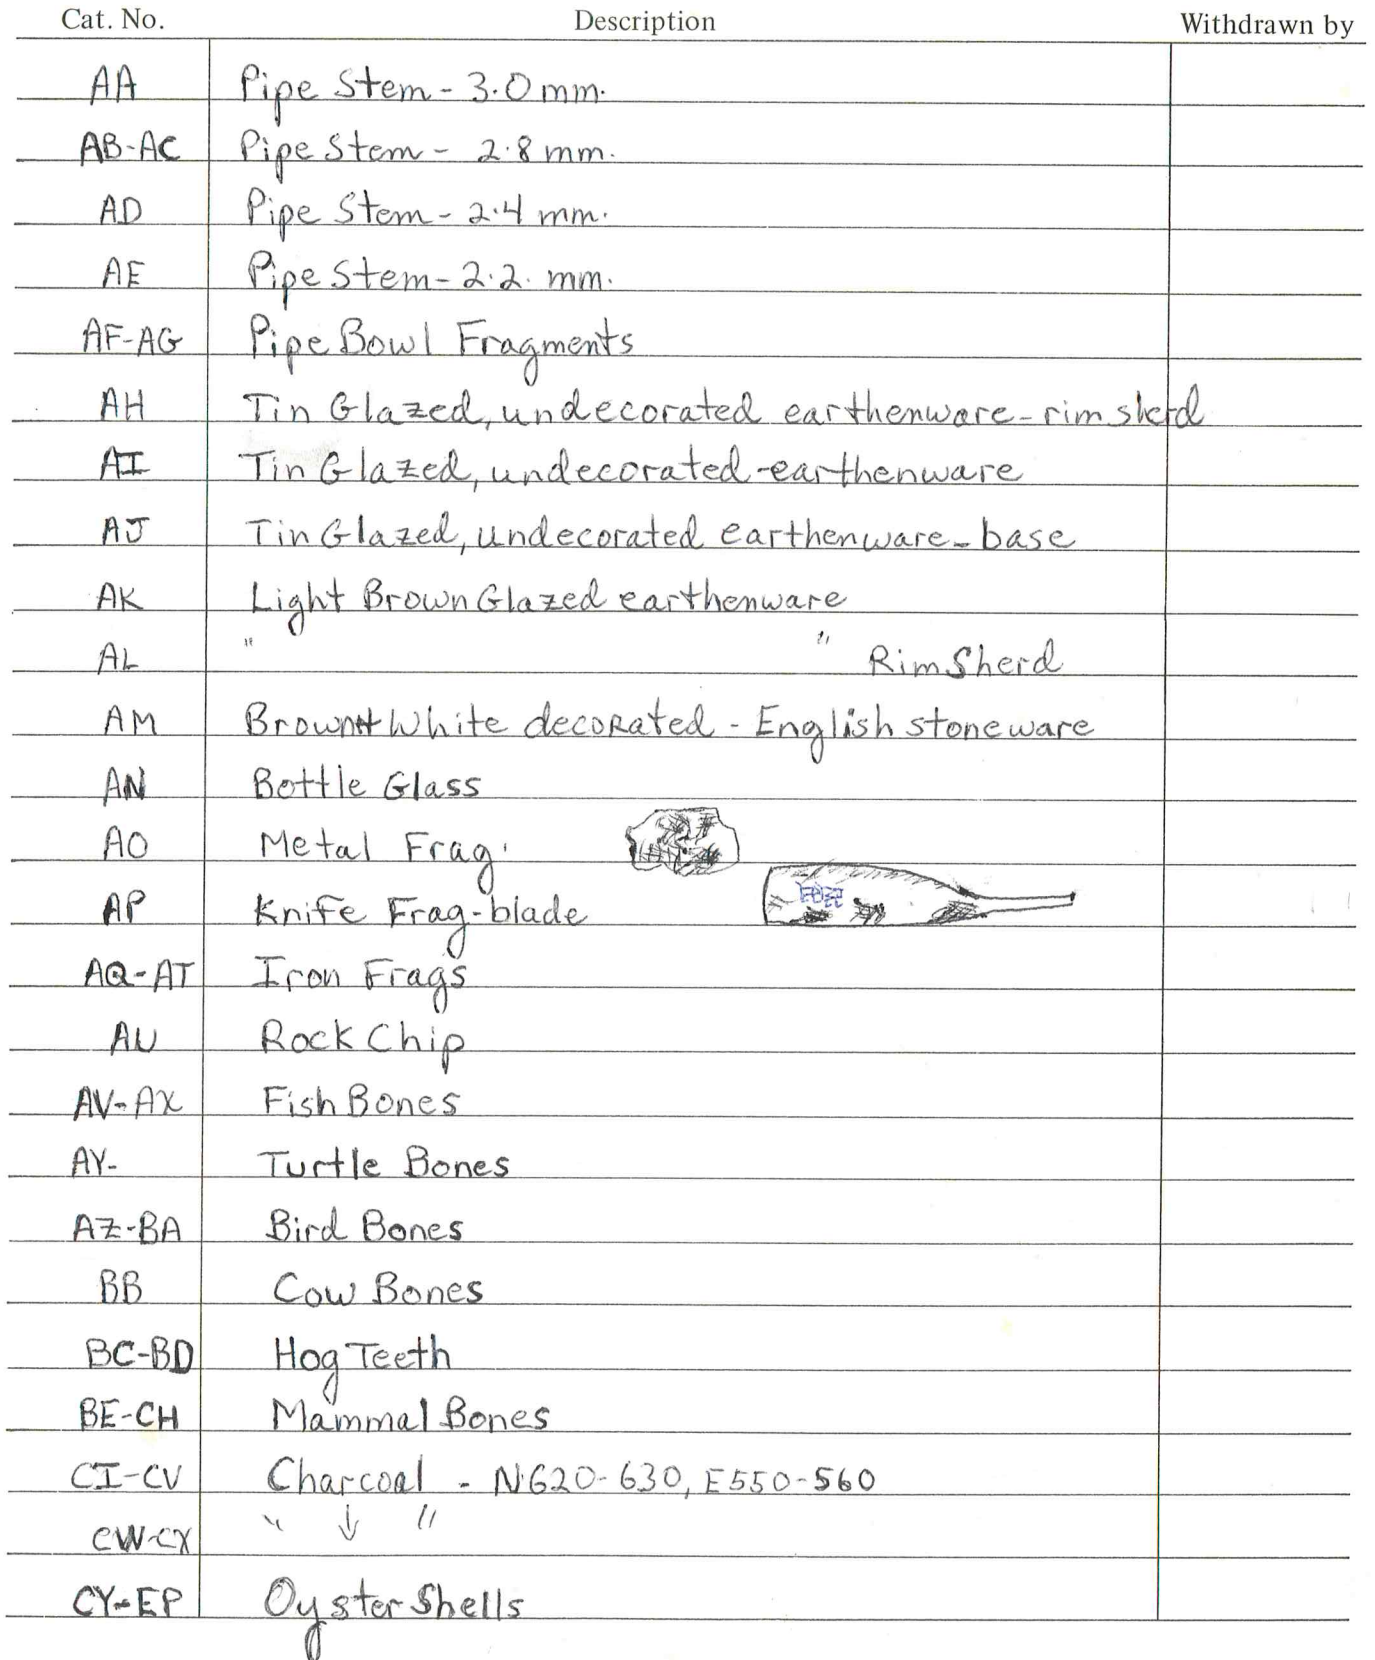 Cat. No. Description Withdrawn by
AA Pipe Stem - 3.0 mm.
AB-AC Pipe Stem - 2.8 mm.
AD Pipe Stem - 2.4 mm.
AE Pipe Stem - 2.2. mm.
AF-AG Pipe Bowl Fragments
AH Tin Glazed, undecorated earthenware - rim sherd
AI Tin Glazed, undecorated - earthenware
AJ Tin Glazed, undecorated earthenware - base
AK Light Brown Glazed earthenware
AL " " Rim Sherd
AM Brown + White decorated - English stoneware
AN Bottle Glass
AO Metal Frag.
AP Knife Frag - blade
AQ-AT Iron Frags
AU Rock Chip
AV-AX Fish Bones
AY- Turtle Bones
AZ-BA Bird Bones
BB Cow Bones
BC-BD Hog Teeth
BE-CH Mammal Bones
CI-CV Charcoal - N620-630, E550-560
CW-CX " ↓ "
CY-EP Oyster Shells